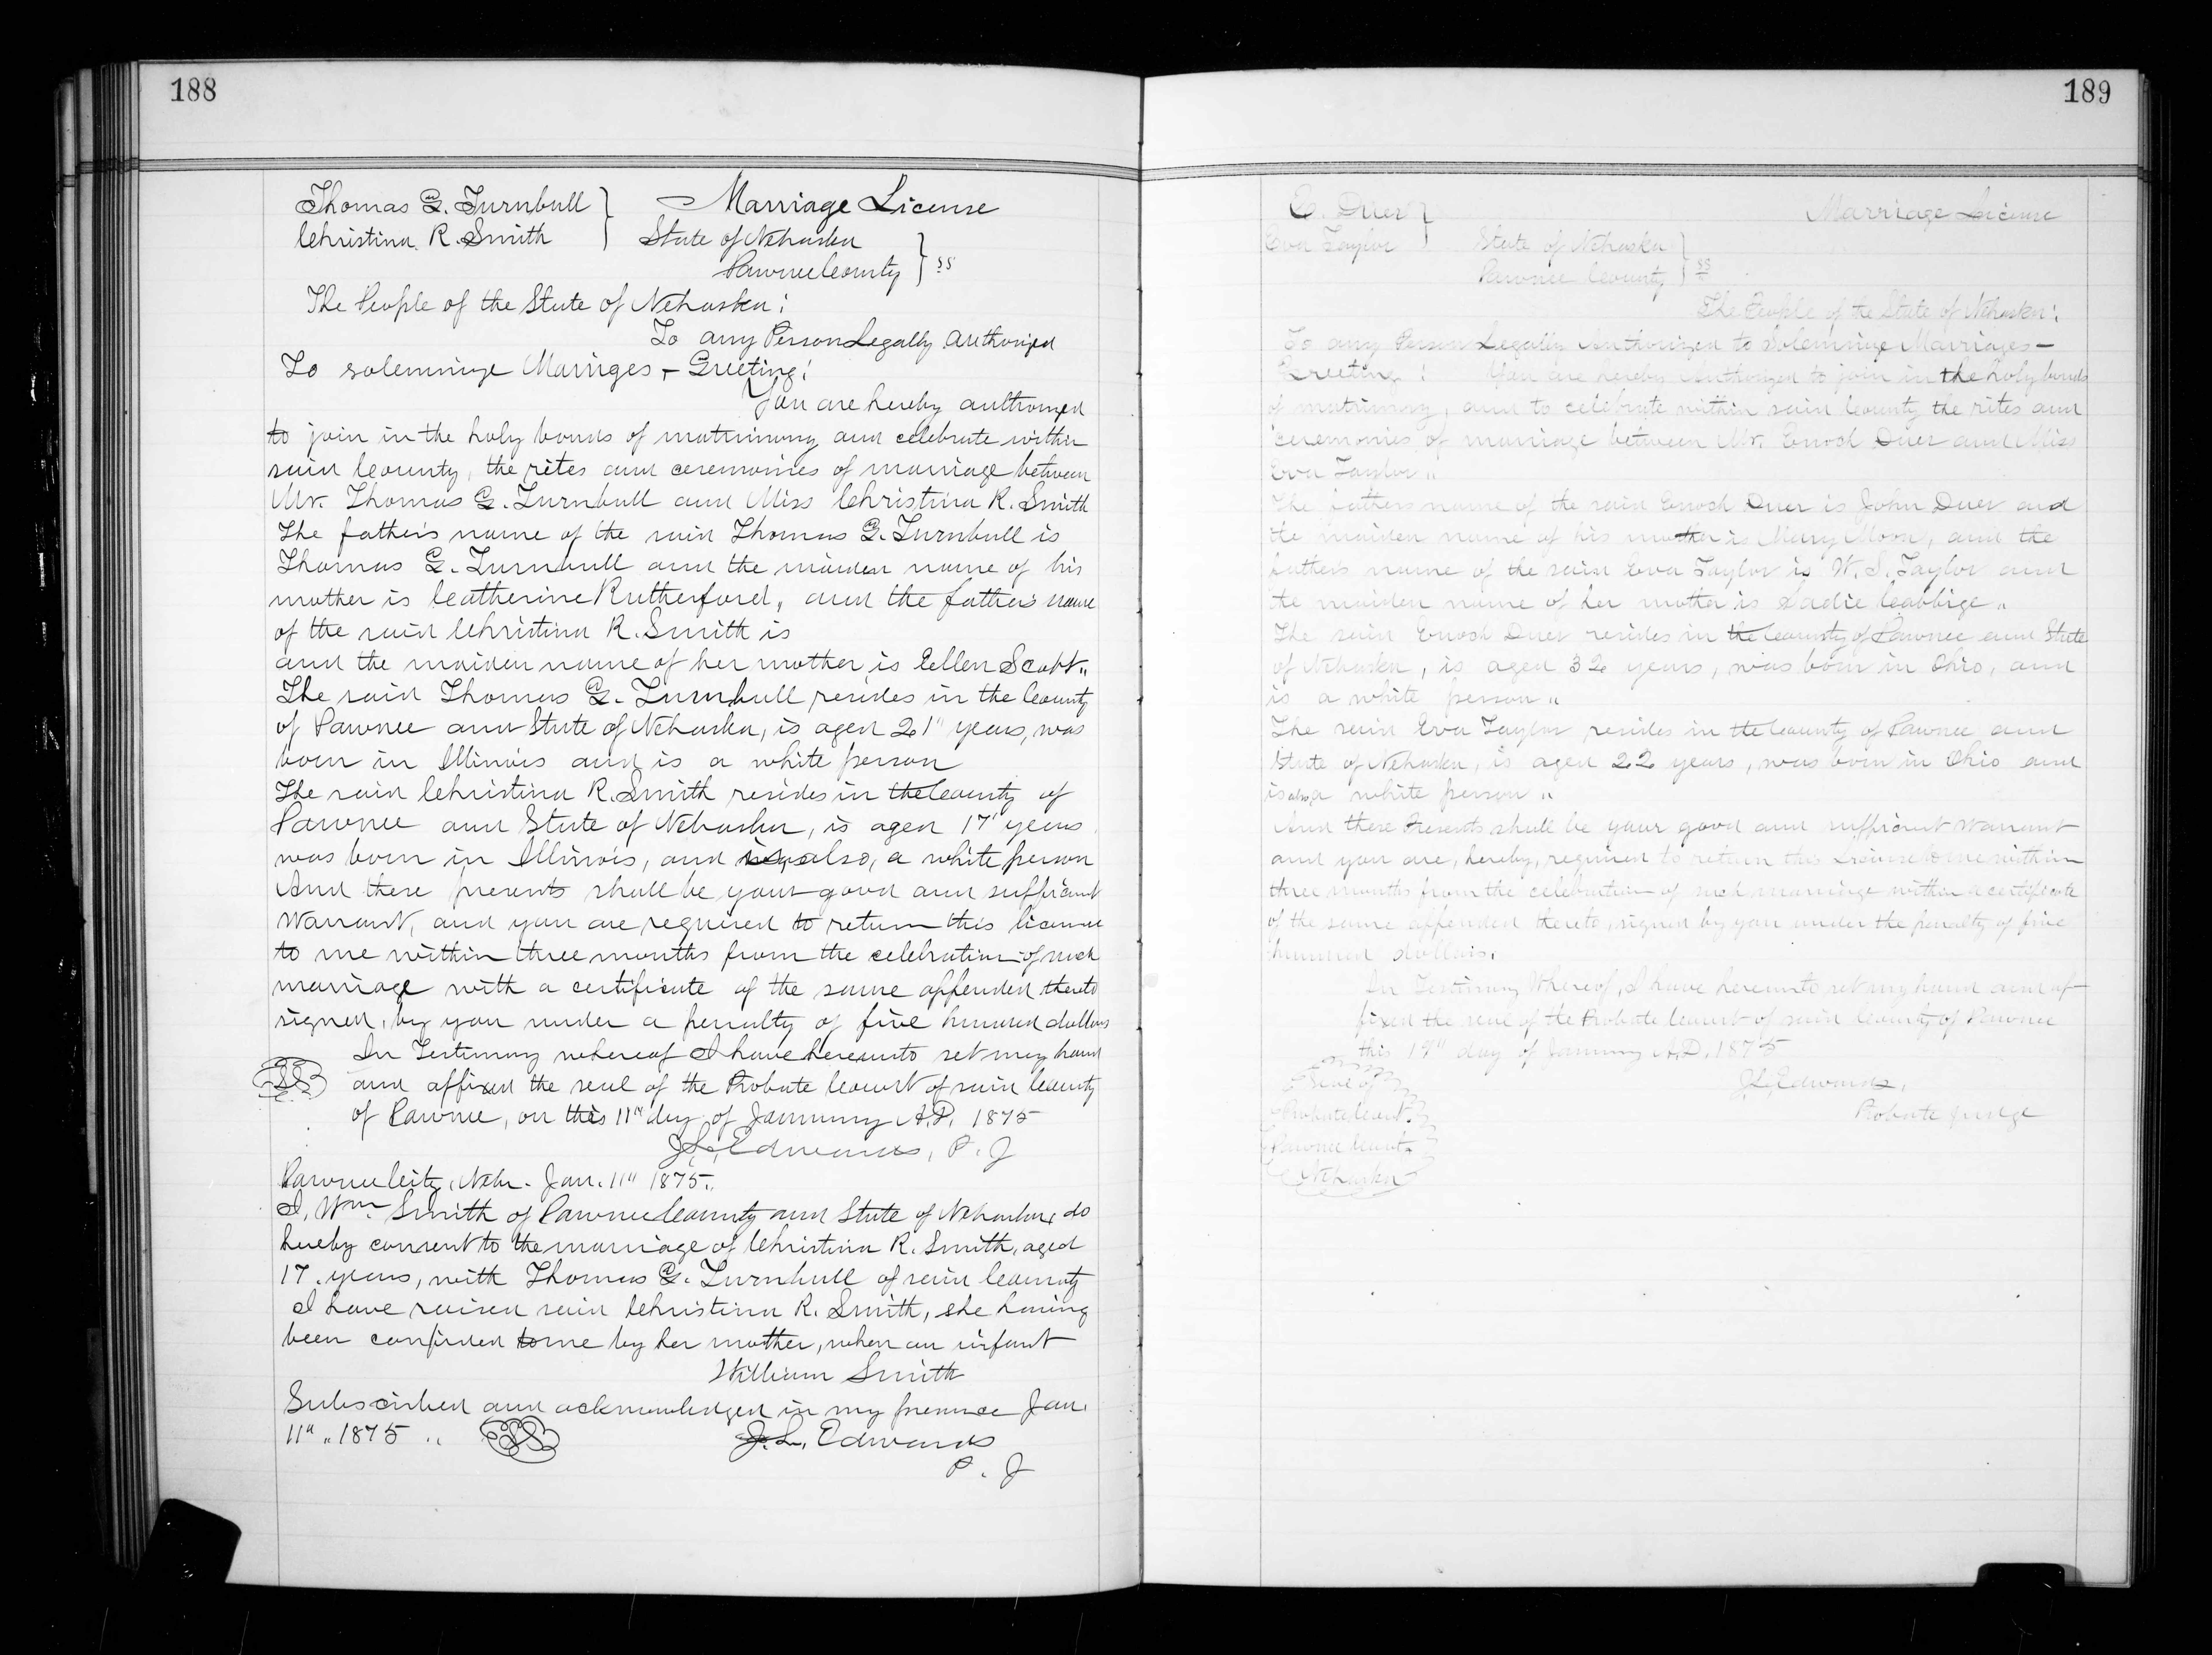 188
Thomas G. Turnbull } Marriage License
Christina R. Smith } State of Nebraska }
Pawnee County } ss
The People of the State of Nebraska:
To any Person Legally Authorized
To solemnize Marriges - Greeting:
You are hereby authorized
to join in the holy bonds of matrimony and celebrate within
said County, the rites and ceremonies of marriage between
Mr. Thomas G. Turnbull and Miss Christina R. Smith
The father's name of the said Thomas G. Turnbull is
Thomas G. Turnbull and the maiden name of his
mother is Catherine Rutherford, and the father's name
of the said Christina R. Smith is
and the maiden name of her mother is Ellen Scott "
The said Thomas G. Turnbull resides in the County
of Pawnee and State of Nebraska, is aged 21" years, was
born in Illinois and is a white person
The said Christina R. Smith resides in the County of
Pawnee and State of Nebraska, is aged 17" years
was born in Illinois, and is also, a white person
And these presents shall be your good and sufficient
Warrant, and you are required to return this license
to me within three months from the celebration of such
marriage with a certificate of the same appended thereto
signed, by you under a penalty of five hundred dollars
In Testimony whereof I have hereunto set my hand
and affixed the seal of the Probate Court of said County
of Pawnee, on this 11" day of January A.D. 1875
J.L. Edwards, P. J
Pawnee City, Nebr. Jan. 11" 1875.
I, Wm. Smith of Pawnee County and State of Nebraska, do
hereby consent to the marriage of Christina R. Smith, aged
17. years, with Thomas G. Turnbull of said County
I have raised said Christina R. Smith, she having
been confided to me by her mother, when an infant
William Smith
Subscribed and acknowledged in my presence Jan.
11" " 1875 " J.L. Edwards
P. J
189
E. Duer } Marriage License
Eva Taylor } State of Nebraska }
Pawnee County } ss
The People of the State of Nebraska:
To any Person Legally Authorized to Solemnize Marriages -
Greeting: You are hereby Authorized to join in the holy bonds
of matrimony, and to celebrate within said County the rites and
ceremonies of marriage between Mr. Enoch Duer and Miss
Eva Taylor "
The fathers name of the said Enoch Duer is John Duer and
the maiden name of his mother is Mary Moon, and the
fathers name of the said Eva Taylor is W. S. Taylor and
the maiden name of her mother is Sadie "
The said Enoch Duer resides in the County of Pawnee and State
of Nebraska, is aged 32 years, was born in Ohio, and
is a white person "
The said Eva Taylor resides in the County of Pawnee and
State of Nebraska, is aged 22 years, was born in Ohio and
is also a white person "
And these Presents shall be your good and sufficient Warrant
and you are, hereby, required to return this License to me within
three months from the celebration of such marriage within a certificate
of the same appended thereto, signed by you under the penalty of five
hundred dollars.
In Testimony Whereof, I have hereunto set my hand and af-
fixed the seal of the Probate Court of said County of Pawnee
this 19" day of January A.D. 1875
J.L. Edwards,
Probate Judge
Seal of
Probate Court.
Pawnee Count.
Nebraska